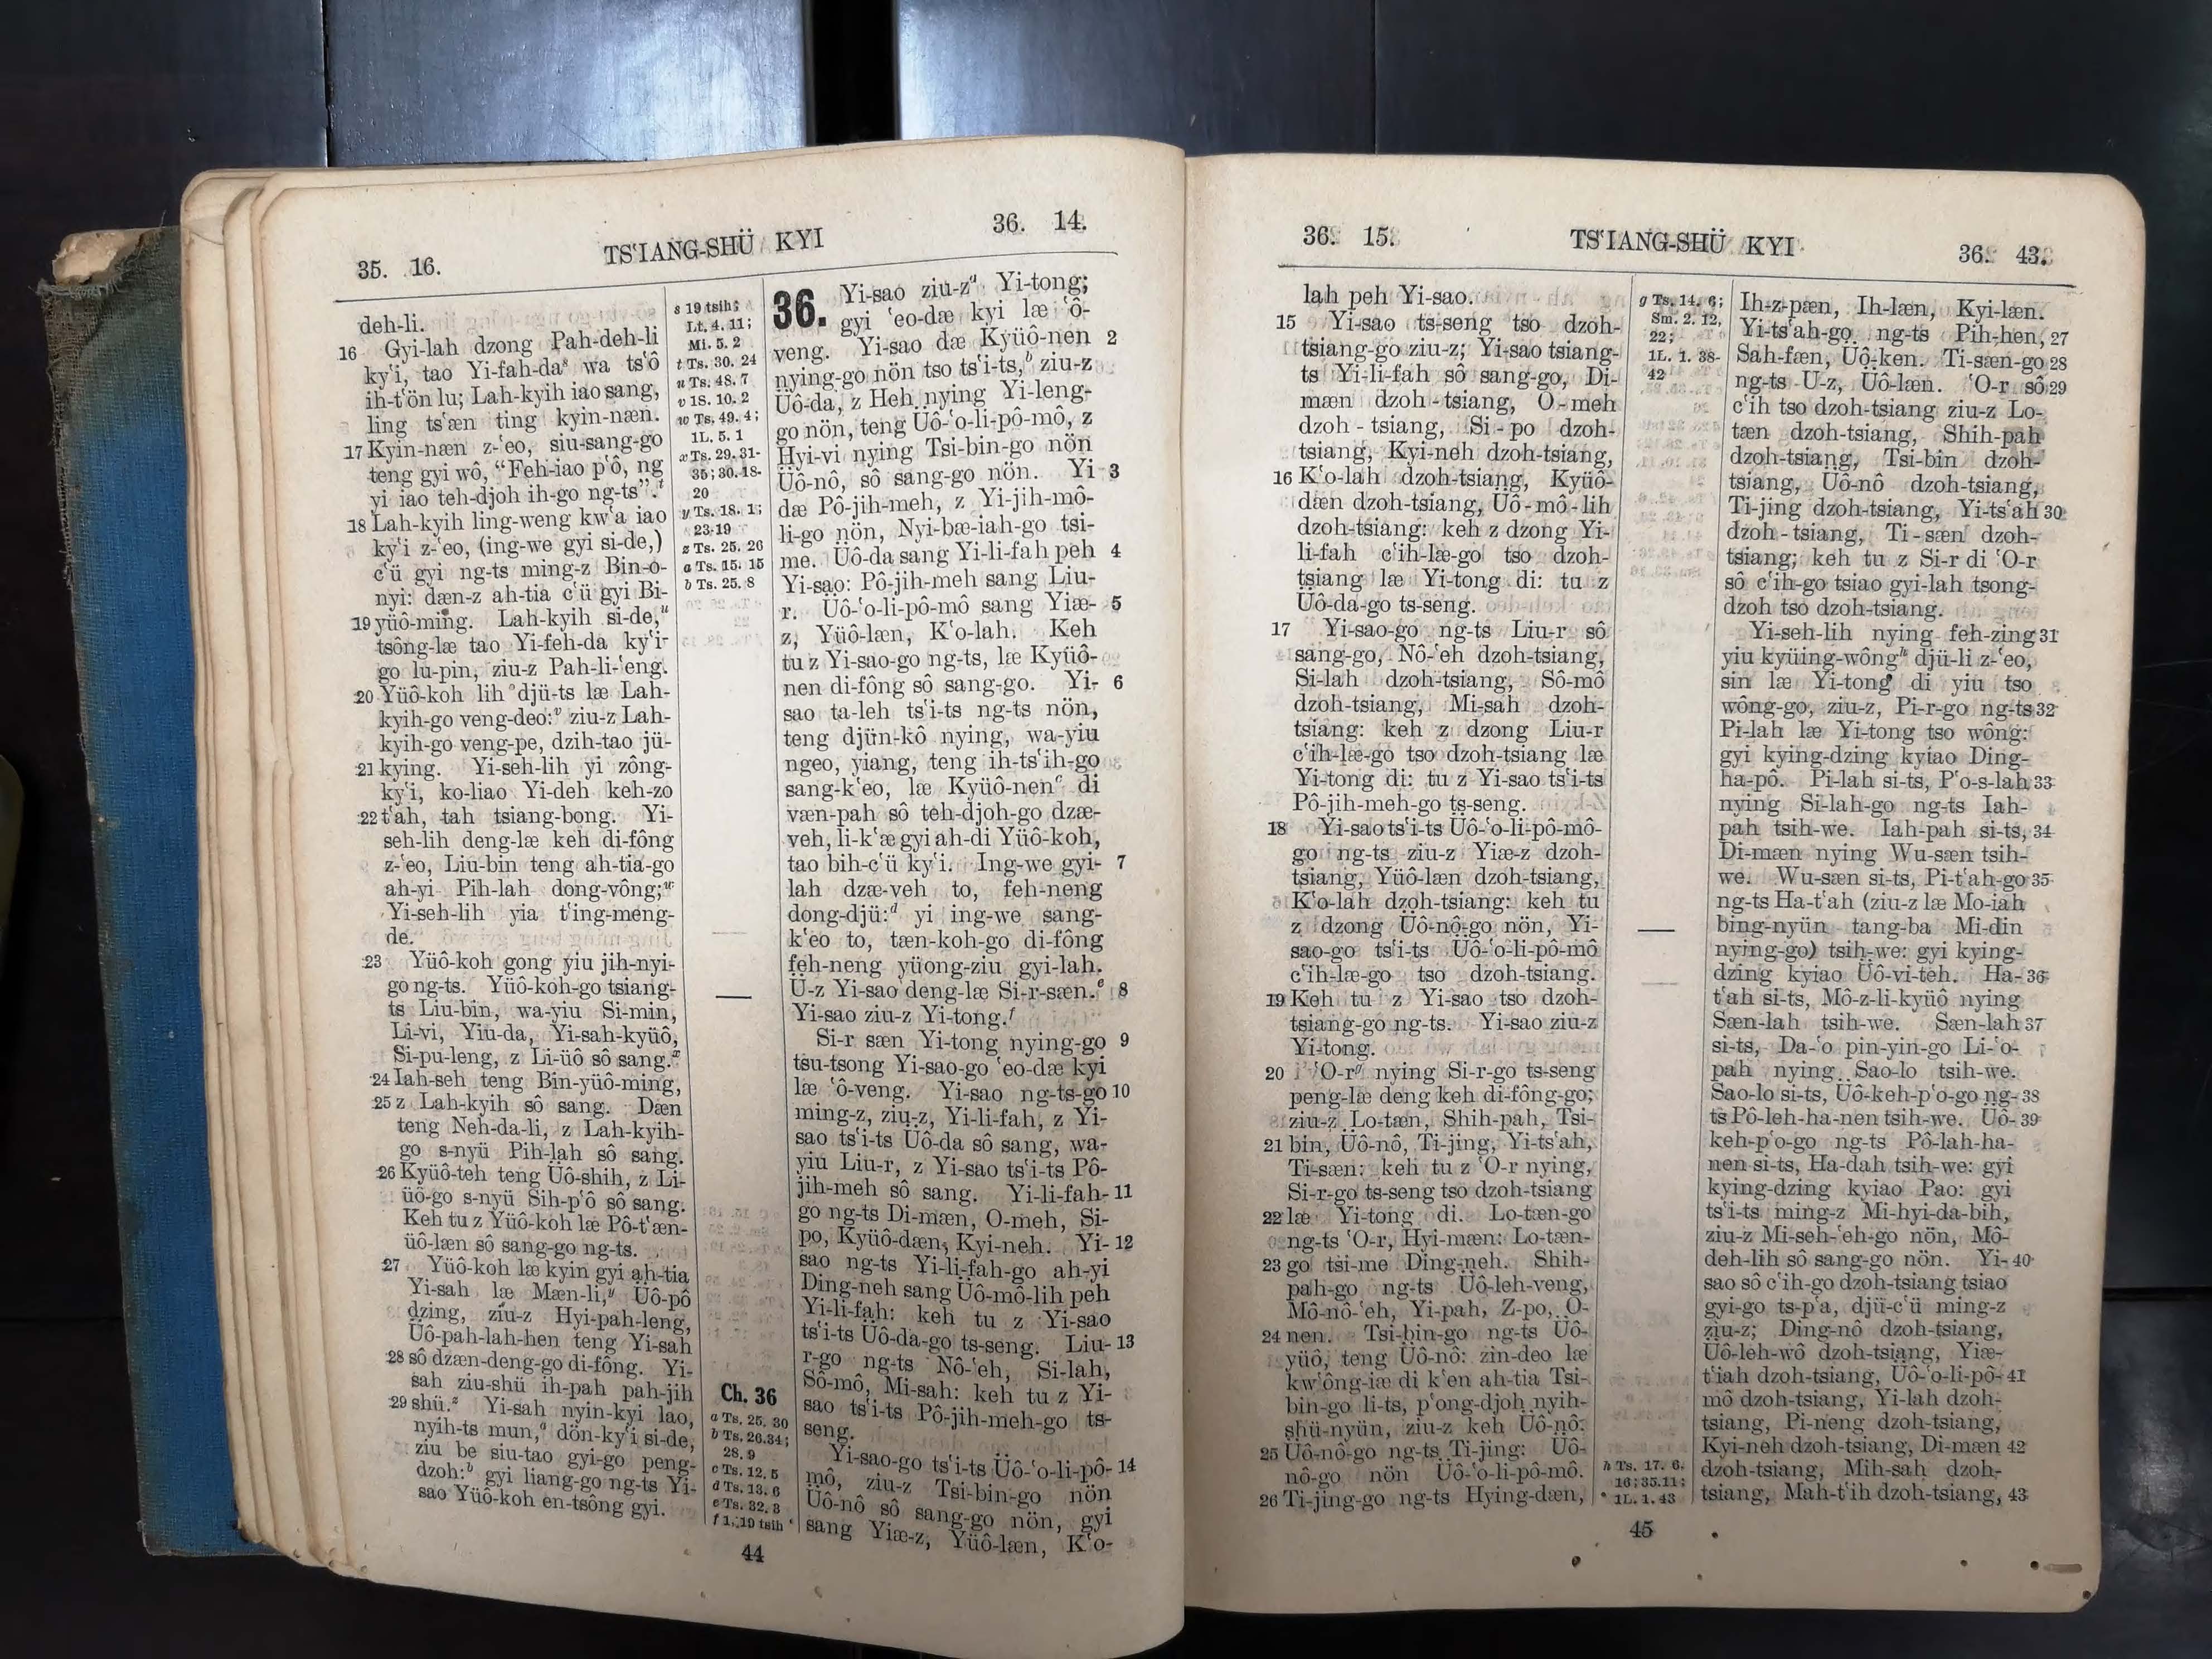 35. 16.
TSʻIANG-SHÜ KYI
36. 14.
deh-li.
16 Gyi-lah dzong Pah-deh-li
kyʻi, tao Yi-fah-daˢ wa tsʻô
ih-tʻön lu; Lah-kyih iao sang,
ling tsʻæn ting kyin-næn.
17 Kyin-næn z-ʻeo, siu-sang-go
teng gyi wô, “Feh-iao pʻô, ng
yi iao teh-djoh ih-go ng-ts”.ᵗ
18 Lah-kyih ling-weng kwʻa iao
kyʻi z-ʻeo, (ing-we gyi si-de,)
cʻü gyi ng-ts ming-z Bin-o-
nyi: dæn-z ah-tia cʻü gyi Bi-
19 yüô-ming. Lah-kyih si-de,ᵘ
tsông-læ tao Yi-feh-da kyʻi-
go lu-pin, ziu-z Pah-li-ʻeng.
20 Yüô-koh lih djü-ts læ Lah-
kyih-go veng-deo:ᵛ ziu-z Lah-
kyih-go veng-pe, dzih-tao jü-
21 kying. Yi-seh-lih yi zông-
kyʻi, ko-liao Yi-deh keh-zo
22 tʻah, tah tsiang-bong. Yi-
seh-lih deng-læ keh di-fông
z-ʻeo, Liu-bin teng ah-tia-go
ah-yi Pih-lah dong-vông;ʷ
Yi-seh-lih yia tʻing-meng-
de.
23 Yüô-koh gong yiu jih-nyi-
go ng-ts. Yüô-koh-go tsiang-
ts Liu-bin, wa-yiu Si-min,
Li-vi, Yiu-da, Yi-sah-kyüô,
Si-pu-leng, z Li-üô sô sang.ˣ
24 Iah-seh teng Bin-yüô-ming,
25 z Lah-kyih sô sang. Dæn
teng Neh-da-li, z Lah-kyih-
go s-nyü Pih-lah sô sang.
26 Kyüô-teh teng Üô-shih, z Li-
üô-go s-nyü Sih-pʻô sô sang.
Keh tu z Yüô-koh læ Pô-tʻæn-
üô-læn sô sang-go ng-ts.
27 Yüô-koh læ kyin gyi ah-tia
Yi-sah læ Mæn-li,ʸ Üô-pô
dzing, ziu-z Hyi-pah-leng,
Üô-pah-lah-hen teng Yi-sah
28 sô dzæn-deng-go di-fông. Yi-
sah ziu-shü ih-pah pah-jih
29 shü.ᶻ Yi-sah nyin-kyi lao,
nyih-ts mun,ᵃ dön-kyʻi si-de,
ziu be siu-tao gyi-go peng-
dzoh:ᵇ gyi liang-go ng-ts Yi-
sao Yüô-koh en-tsông gyi.
s 19 tsih;
Lt. 4. 11;
Mi. 5. 2
t Ts. 30. 24
u Ts. 48. 7
v 1S. 10. 2
w Ts. 49. 4;
1L. 5. 1
x Ts. 29. 31-
35; 30. 18-
20
y Ts. 18. 1;
23-19
z Ts. 25. 26
a Ts. 15. 15
b Ts. 25. 8
Ch. 36
a Ts. 25. 30
b Ts. 26.34;
28. 9
c Ts. 12. 5
d Ts. 13. 6
e Ts. 32. 3
f 1, 19 tsih
36. Yi-sao ziu-zᵃ Yi-tong;
gyi ʻeo-dæ kyi læ ʻô-
veng. Yi-sao dæ Kyüô-nen 2
nying-go nön tso tsʻi-ts,ᵇ ziu-z
Üô-da, z Heh nying Yi-leng-
go nön, teng Üô-ʻo-li-pô-mô, z
Hyi-vi nying Tsi-bin-go nön
Üô-nô, sô sang-go nön. Yi 3
dæ Pô-jih-meh, z Yi-jih-mô-
li-go nön, Nyi-bæ-iah-go tsi-
me. Üô-da sang Yi-li-fah peh 4
Yi-sao: Pô-jih-meh sang Liu-
r. Üô-ʻo-li-pô-mô sang Yiæ- 5
z, Yüô-læn, Kʻo-lah. Keh
tu z Yi-sao-go ng-ts, læ Kyüô-
nen di-fông sô sang-go. Yi- 6
sao ta-leh tsʻi-ts ng-ts nön,
teng djün-kô nying, wa-yiu
ngeo, yiang, teng ih-tsʻih-go
sang-kʻeo, læ Kyüô-nenᶜ di
væn-pah sô teh-djoh-go dzæ-
veh, li-kʻæ gyi ah-di Yüô-koh,
tao bih-cʻü kyʻi. Ing-we gyi- 7
lah dzæ-veh to, feh-neng
dong-djü:ᵈ yi ing-we sang-
kʻeo to, tæn-koh-go di-fông
feh-neng yüong-ziu gyi-lah.
U-z Yi-sao deng-læ Si-r-sæn.ᵉ 8
Yi-sao ziu-z Yi-tong.ᶠ
Si-r sæn Yi-tong nying-go 9
tsu-tsong Yi-sao-go ʻeo-dæ kyi
læ ʻô-veng. Yi-sao ng-ts-go 10
ming-z, ziu-z, Yi-li-fah, z Yi-
sao tsʻi-ts Üô-da sô sang, wa-
yiu Liu-r, z Yi-sao tsʻi-ts Pô-
jih-meh sô sang. Yi-li-fah- 11
go ng-ts Di-mæn, O-meh, Si-
po, Kyüô-dæn, Kyi-neh. Yi- 12
sao ng-ts Yi-li-fah-go ah-yi
Ding-neh sang Üô-mô-lih peh
Yi-li-fah: keh tu z Yi-sao
tsʻi-ts Üô-da-go ts-seng. Liu- 13
r-go ng-ts Nô-ʻeh, Si-lah,
Sô-mô, Mi-sah: keh tu z Yi-
sao tsʻi-ts Pô-jih-meh-go ts-
seng.
Yi-sao-go tsʻi-ts Üô-ʻo-li-pô- 14
mô, ziu-z Tsi-bin-go nön
Üô-nô sô sang-go nön, gyi
sang Yiæ-z, Yüô-læn, Kʻo-
44
36. 15.
TSʻIANG-SHÜ KYI
36. 43.
lah peh Yi-sao.
15 Yi-sao ts-seng tso dzoh-
tsiang-go ziu-z; Yi-sao tsiang-
ts Yi-li-fah sô sang-go, Di-
mæn dzoh-tsiang, O-meh
dzoh-tsiang, Si-po dzoh-
tsiang, Kyi-neh dzoh-tsiang,
16 Kʻo-lah dzoh-tsiang, Kyüô-
dæn dzoh-tsiang, Üô-mô-lih
dzoh-tsiang: keh z dzong Yi-
li-fah cʻih-læ-go tso dzoh-
tsiang læ Yi-tong di: tu z
Üô-da-go ts-seng.
17 Yi-sao-go ng-ts Liu-r sô
sang-go, Nô-ʻeh dzoh-tsiang,
Si-lah dzoh-tsiang, Sô-mô
dzoh-tsiang, Mi-sah dzoh-
tsiang: keh z dzong Liu-r
cʻih-læ-go tso dzoh-tsiang læ
Yi-tong di: tu z Yi-sao tsʻi-ts
Pô-jih-meh-go ts-seng.
18 Yi-sao tsʻi-ts Üô-ʻo-li-pô-mô-
go ng-ts ziu-z Yiæ-z dzoh-
tsiang, Yüô-læn dzoh-tsiang,
Kʻo-lah dzoh-tsiang: keh tu
z dzong Üô-nô-go nön, Yi-
sao-go tsʻi-ts Üô-ʻo-li-pô-mô
cʻih-læ-go tso dzoh-tsiang.
19 Keh tu z Yi-sao tso dzoh-
tsiang-go ng-ts. Yi-sao ziu-z
Yi-tong.
20 ʻO-rᵍ nying Si-r-go ts-seng
peng-læ deng keh di-fông-go;
ziu-z Lo-tæn, Shih-pah, Tsi-
21 bin, Üô-nô, Ti-jing, Yi-tsʻah,
Ti-sæn: keh tu z ʻO-r nying,
Si-r-go ts-seng tso dzoh-tsiang
22 læ Yi-tong di. Lo-tæn-go
ng-ts ʻO-r, Hyi-mæn: Lo-tæn-
23 go tsi-me Ding-neh. Shih-
pah-go ng-ts Üô-leh-veng,
Mô-nô-ʻeh, Yi-pah, Z-po, O-
24 nen. Tsi-bin-go ng-ts Üô-
yüô, teng Üô-nô: zin-deo læ
kwʻông-iæ di kʻen ah-tia Tsi-
bin-go li-ts, pʻong-djoh nyih-
shü-nyün, ziu-z keh Üô-nô.
25 Üô-nô-go ng-ts Ti-jing: Üô-
nô-go nön Üô-ʻo-li-pô-mô.
26 Ti-jing-go ng-ts Hying-dæn,
g Ts. 14. 6;
Sm. 2. 12,
22;
1L. 1. 38-
42
h Ts. 17. 6.
16; 35.11;
1L. 1. 43
Ih-z-pæn, Ih-læn, Kyi-læn.
Yi-tsʻah-go ng-ts Pih-hen, 27
Sah-fæn, Üô-ken. Ti-sæn-go 28
ng-ts U-z, Üô-læn. ʻO-r sô 29
cʻih tso dzoh-tsiang ziu-z Lo-
tæn dzoh-tsiang, Shih-pah
dzoh-tsiang, Tsi-bin dzoh-
tsiang, Üô-nô dzoh-tsiang,
Ti-jing dzoh-tsiang, Yi-tsʻah 30
dzoh-tsiang, Ti-sæn dzoh-
tsiang; keh tu z Si-r di ʻO-r
sô cʻih-go tsiao gyi-lah tsong-
dzoh tso dzoh-tsiang.
Yi-seh-lih nying feh-zing 31
yiu kyüing-wôngʰ djü-li z-ʻeo,
sin læ Yi-tong di yiu tso
wông-go, ziu-z, Pi-r-go ng-ts 32
Pi-lah læ Yi-tong tso wông:
gyi kying-dzing kyiao Ding-
ha-pô. Pi-lah si-ts, Pʻo-s-lah 33
nying Si-lah-go ng-ts Iah-
pah tsih-we. Iah-pah si-ts, 34
Di-mæn nying Wu-sæn tsih-
we. Wu-sæn si-ts, Pi-tʻah-go 35
ng-ts Ha-tʻah (ziu-z læ Mo-iah
bing-nyün tang-ba Mi-din
nying-go) tsih-we: gyi kying-
dzing kyiao Üô-vi-teh. Ha- 36
tʻah si-ts, Mô-z-li-kyüô nying
Sæn-lah tsih-we. Sæn-lah 37
si-ts, Da-ʻo pin-yin-go Li-ʻo-
pah nying Sao-lo tsih-we.
Sao-lo si-ts, Üô-keh-pʻo-go ng- 38
ts Pô-leh-ha-nen tsih-we. Üô- 39
keh-pʻo-go ng-ts Pô-lah-ha-
nen si-ts, Ha-dah tsih-we: gyi
kying-dzing kyiao Pao: gyi
tsʻi-ts ming-z Mi-hyi-da-bih,
ziu-z Mi-seh-ʻeh-go nön, Mô-
deh-lih sô sang-go nön. Yi- 40
sao sô cʻih-go dzoh-tsiang tsiao
gyi-go ts-pʻa, djü-cʻü ming-z
ziu-z; Ding-nô dzoh-tsiang,
Üô-leh-wô dzoh-tsiang, Yiæ-
tʻiah dzoh-tsiang, Üô-ʻo-li-pô- 41
mô dzoh-tsiang, Yi-lah dzoh-
tsiang, Pi-neng dzoh-tsiang,
Kyi-neh dzoh-tsiang, Di-mæn 42
dzoh-tsiang, Mih-sah dzoh-
tsiang, Mah-tʻih dzoh-tsiang, 43
45